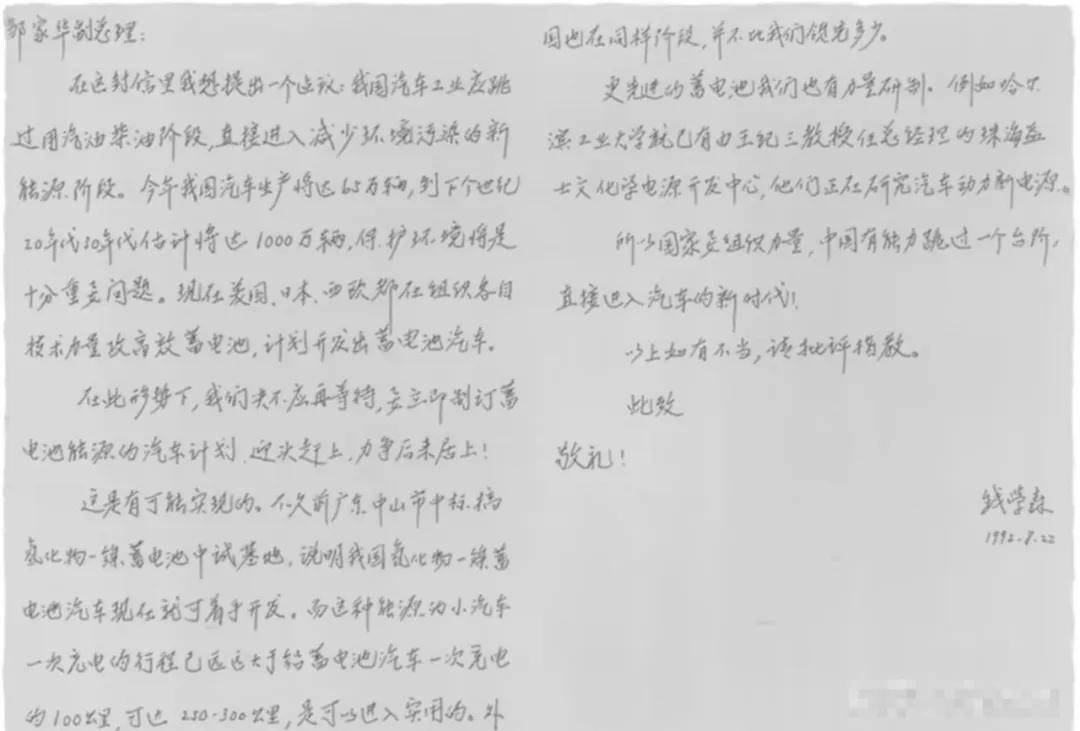 邹家华副总理：
在这封信里我想提出一个建议：我国汽车工业应跳
过用汽油柴油阶段，直接进入减少环境污染的新
能源阶段。今年我国汽车生产将达65万辆，到下个世纪
20年代30年代估计将达1000万辆，保护环境将是
十分重要问题。现在美国、日本、西欧都在组织各自
技术力量攻高效蓄电池，计划开发出蓄电池汽车。
在此形势下，我们决不应再等待，要立即制订蓄
电池能源的汽车计划，迎头赶上，力争后来居上！
这是有可能实现的。不久前广东中山市中标搞
氢化物-镍蓄电池中试基地，说明我国氢化物-镍蓄
电池汽车现在就可着手开发。而这种能源的小汽车
一次充电的行程已远远大于铅蓄电池汽车一次充电
的100公里，可达 250-300公里，是可以进入实用的。外
国也在同样阶段，并不比我们领先多少。
更先进的蓄电池我们也有力量研制。例如哈尔
滨工业大学就已有由王纪三教授任总经理的珠海益
士文化学电源开发中心，他们正在研究汽车动力新电源。
所以国家要组织力量，中国有能力跳过一个台阶，
直接进入汽车的新时代！
以上如有不当，请批评指教。
此致
敬礼！
钱学森
1992.8.22